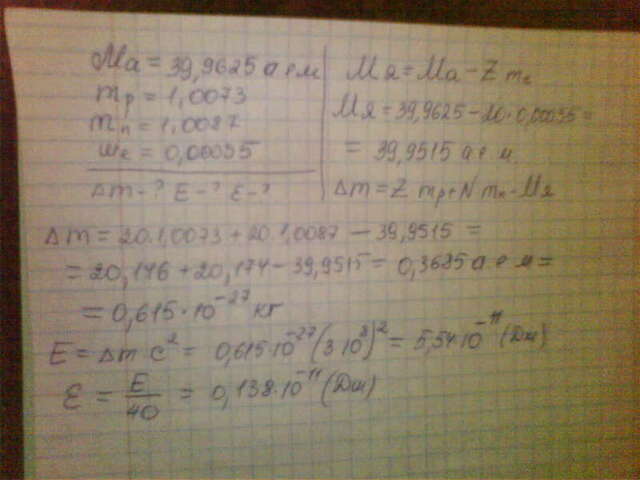 Ma = 39,9625 а е м
mp = 1,0073
mn = 1,0087
me = 0,00055
Δm - ? E - ? ε - ?
Mя = Ma - Z me
Mя = 39,9625 - 20 · 0,00055 =
= 39,9515 а е м.
Δm = Z mp + N mn - Mя
Δm = 20 · 1,0073 + 20 · 1,0087 - 39,9515 =
= 20,146 + 20,174 - 39,9515 = 0,3685 а е м =
= 0,615 · 10⁻²⁷ кг
E = Δm c² = 0,615 · 10⁻²⁷ (3 10⁸)² = 5,54 · 10⁻¹¹ (Дж)
ε = E/40 = 0,138 · 10⁻¹¹ (Дж)